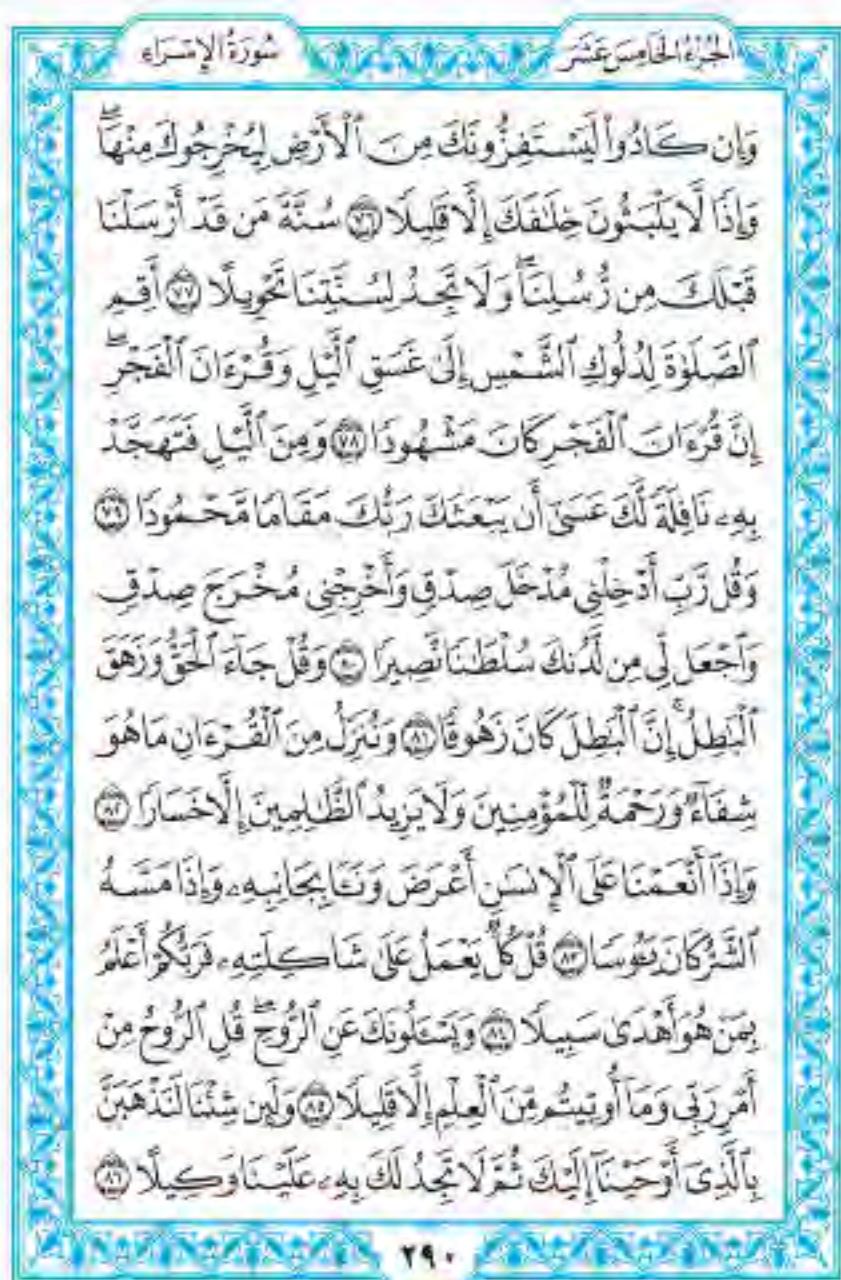 الجُزْءُ الخَامِسَ عَشَرَ
سُورَةُ الإِسْرَاءِ
وَإِن كَادُواْ لَيَسْتَفِزُّونَكَ مِنَ ٱلْأَرْضِ لِيُخْرِجُوكَ مِنْهَاۖ
وَإِذًا لَّا يَلْبَثُونَ خِلَٰفَكَ إِلَّا قَلِيلًا ٧٦ سُنَّةَ مَن قَدْ أَرْسَلْنَا
قَبْلَكَ مِن رُّسُلِنَاۖ وَلَا تَجِدُ لِسُنَّتِنَا تَحْوِيلًا ٧٧ أَقِمِ
ٱلصَّلَوٰةَ لِدُلُوكِ ٱلشَّمْسِ إِلَىٰ غَسَقِ ٱلَّيْلِ وَقُرْءَانَ ٱلْفَجْرِۖ
إِنَّ قُرْءَانَ ٱلْفَجْرِ كَانَ مَشْهُودًا ٧٨ وَمِنَ ٱلَّيْلِ فَتَهَجَّدْ
بِهِۦ نَافِلَةً لَّكَ عَسَىٰٓ أَن يَبْعَثَكَ رَبُّكَ مَقَامًا مَّحْمُودًا ٧٩
وَقُل رَّبِّ أَدْخِلْنِي مُدْخَلَ صِدْقٍ وَأَخْرِجْنِي مُخْرَجَ صِدْقٍ
وَٱجْعَل لِّي مِن لَّدُنكَ سُلْطَٰنًا نَّصِيرًا ٨٠ وَقُلْ جَآءَ ٱلْحَقُّ وَزَهَقَ
ٱلْبَٰطِلُۚ إِنَّ ٱلْبَٰطِلَ كَانَ زَهُوقًا ٨١ وَنُنَزِّلُ مِنَ ٱلْقُرْءَانِ مَا هُوَ
شِفَآءٌ وَرَحْمَةٌ لِّلْمُؤْمِنِينَ وَلَا يَزِيدُ ٱلظَّٰلِمِينَ إِلَّا خَسَارًا ٨٢
وَإِذَآ أَنْعَمْنَا عَلَى ٱلْإِنسَٰنِ أَعْرَضَ وَنَـَٔا بِجَانِبِهِۦ وَإِذَا مَسَّهُ
ٱلشَّرُّ كَانَ يَـُٔوسًا ٨٣ قُلْ كُلٌّ يَعْمَلُ عَلَىٰ شَاكِلَتِهِۦ فَرَبُّكُمْ أَعْلَمُ
بِمَنْ هُوَ أَهْدَىٰ سَبِيلًا ٨٤ وَيَسْـَٔلُونَكَ عَنِ ٱلرُّوحِۖ قُلِ ٱلرُّوحُ مِنْ
أَمْرِ رَبِّي وَمَآ أُوتِيتُم مِّنَ ٱلْعِلْمِ إِلَّا قَلِيلًا ٨٥ وَلَئِن شِئْنَا لَنَذْهَبَنَّ
بِٱلَّذِيٓ أَوْحَيْنَآ إِلَيْكَ ثُمَّ لَا تَجِدُ لَكَ بِهِۦ عَلَيْنَا وَكِيلًا ٨٦
٢٩٠